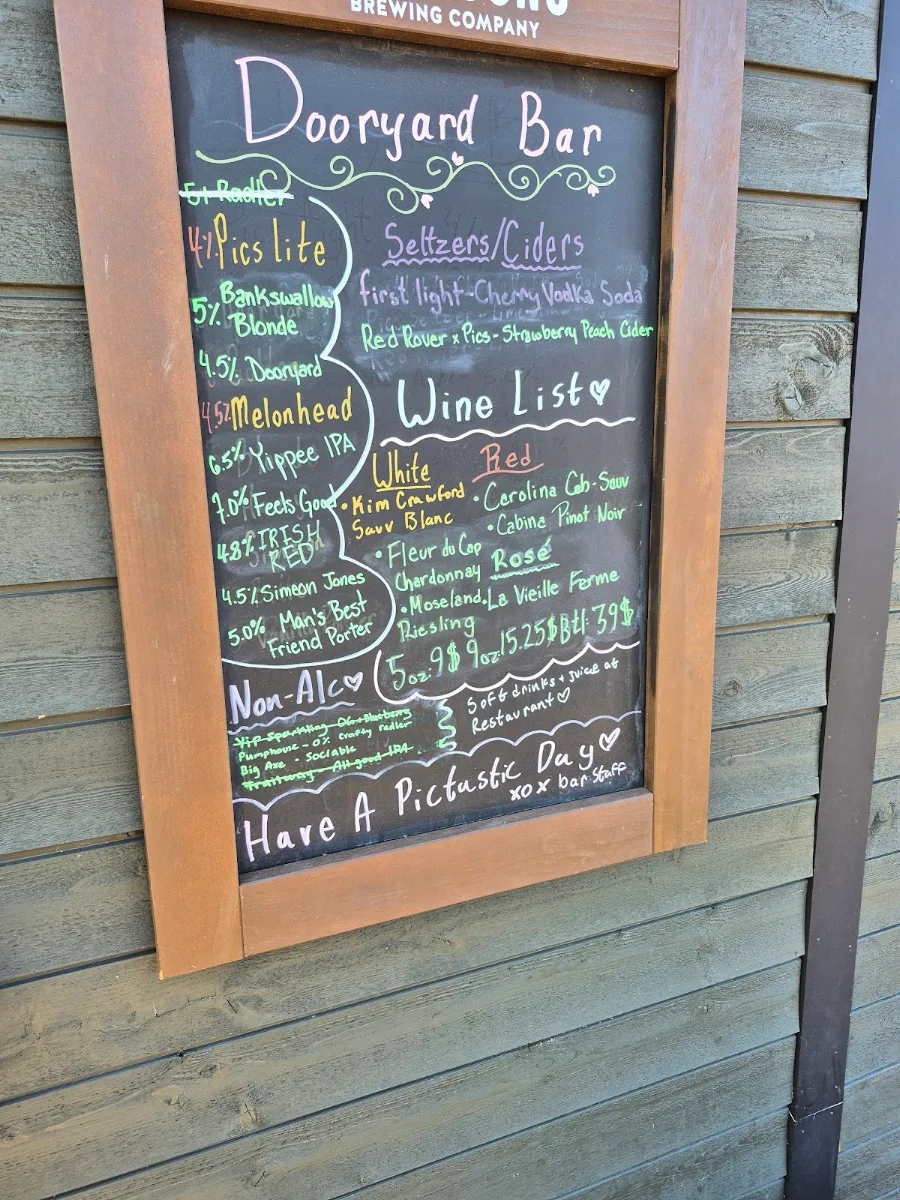 BREWING COMPANY
Dooryard Bar
Radler
4% Pics lite
5% Bankswallow
Blonde
4.5% Dooryard
4.5% Melonhead
6.5% Yippee IPA
7.0% Feels Good
4.8% IRISH
RED
4.5% Simeon Jones
5.0% Man's Best
Friend Porter
Seltzers/Ciders
first light-Cherry Vodka Soda
Red Rover x Pics - Strawberry Peach Cider
Wine List
White
• Kim Crawford
Sauv Blanc
• Fleur du Cap
Chardonnay
• Moseland
Riesling
Red
• Carolina Cab-Sauv
• Cabina Pinot Noir
Rosé
• La Vieille Ferme
5oz: 9$ 9oz: 15.25$ Btl: 39$
Non-Alc
Yip Sparkling OG + Blueberry
Pumphouse - 0% Crafty radler
Big Axe - Sociable
Trailway - All good IPA
Soft drinks + juice at
Restaurant
Have A Pictastic Day
xox bar staff